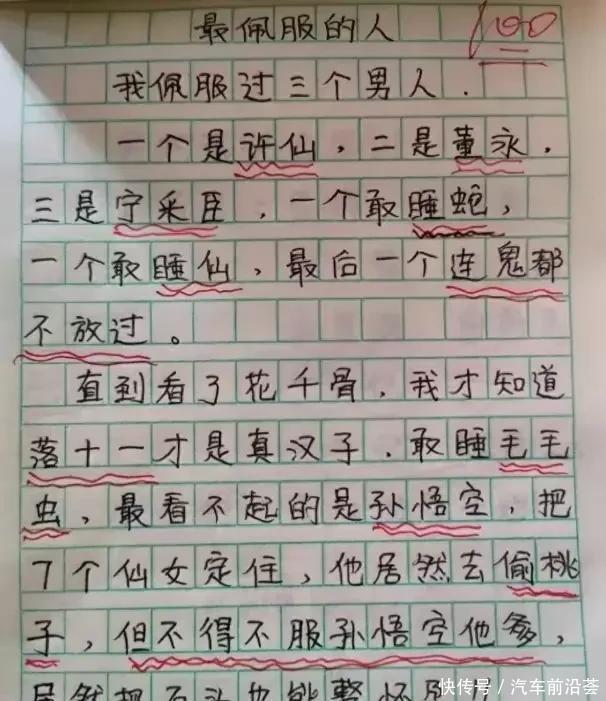 最佩服的人
100
我佩服过三个男人.
一个是许仙,二是董永,
三是宁采臣,一个敢睡蛇,
一个敢睡仙,最后一个连鬼都
不放过。
直到看了花千骨,我才知道
落十一才是真汉子.敢睡毛毛
虫,最看不起的是孙悟空,把
7个仙女定住,他居然去偷桃
子,但不得不服孙悟空他爹,
居然把石头也能整怀孕
快传号/汽车前沿荟